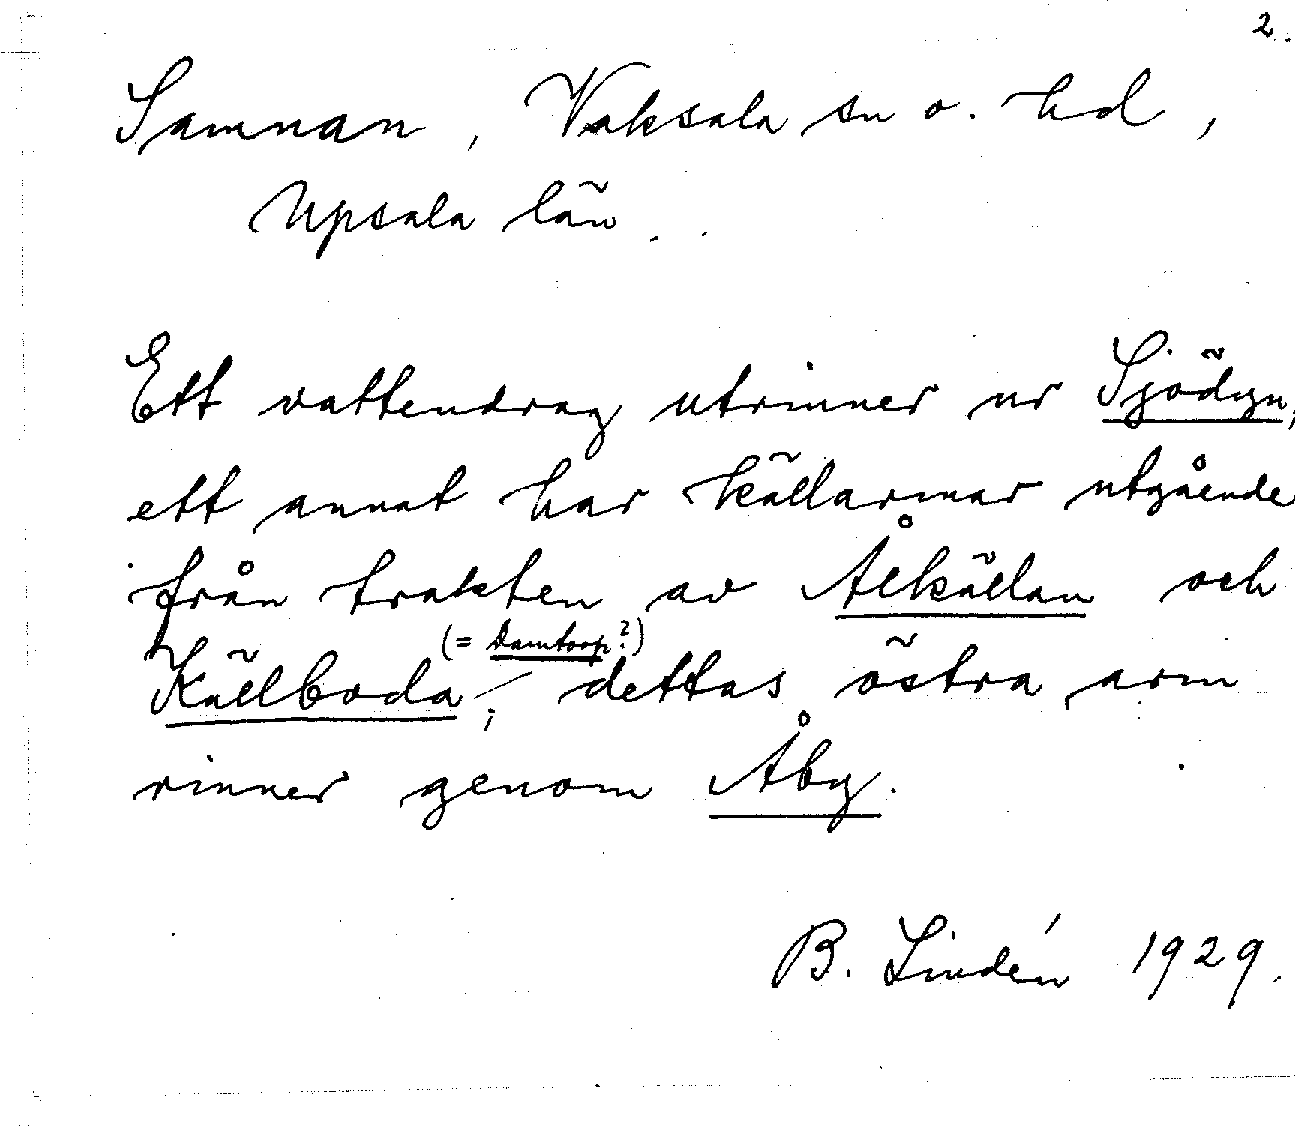 2.
Samnan, Vaksala sn o. hd,
Upsala län.
Ett vattendrag utrinner ur Sjödyn,
ett annat har källarmar utgående
från trakten av Ålkällan och
(= Damtorp?)
Källboda; dettas östra arm
rinner genom Åby.
B. Lindén 1929.